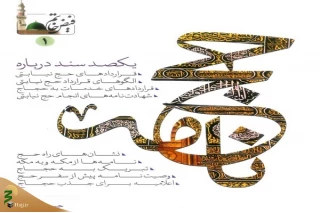 ۱
یکصد سند درباره
قراردادهای حج نیابتی
الگوهای قرارداد حج نیابتی
قراردادهای خدمات به حجاج
شهادت‌نامه‌های انجام حج نیابتی
نشان‌های راه حج
نامه‌ها از مکه و به مکه
تبریک به حجاج
وصیت نامه پیش از سفر حج
اعلامیه برای جذب حجاج